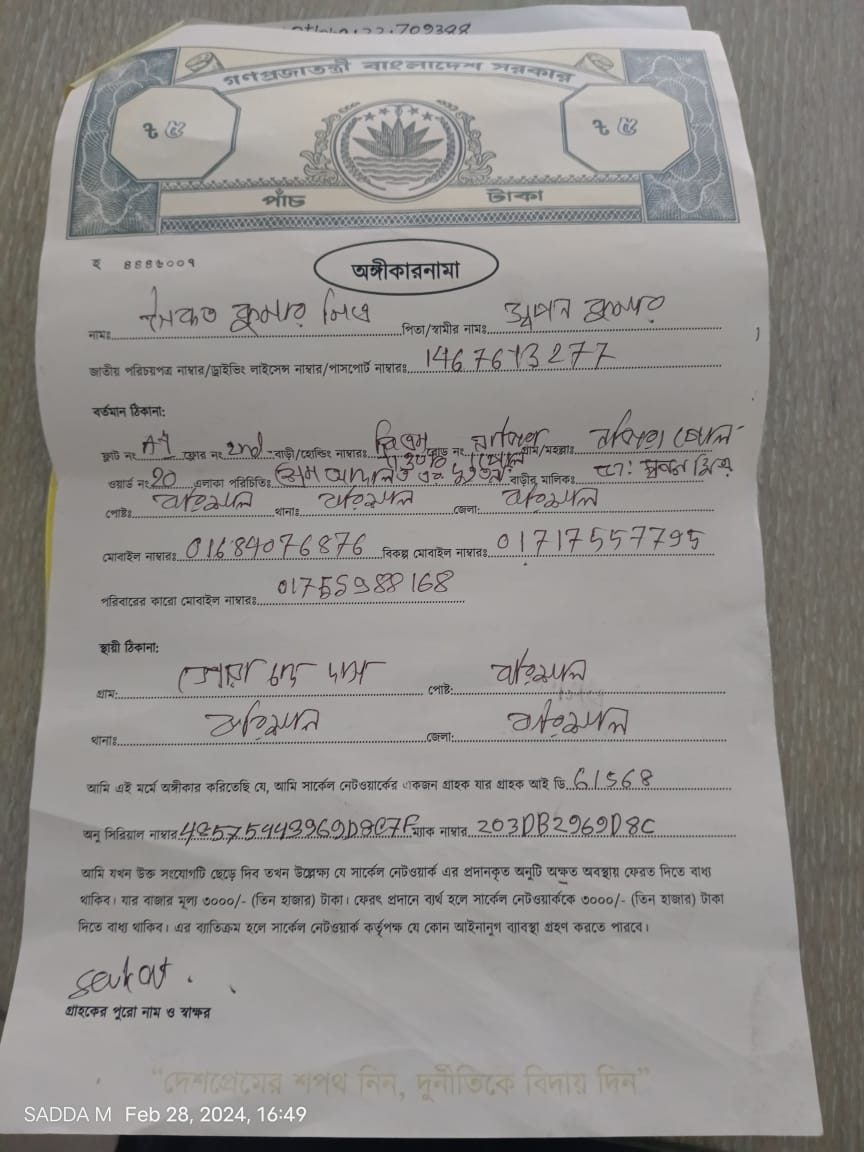 709388
গণপ্রজাতন্ত্রী বাংলাদেশ সরকার
৳ ৫ ৳ ৫
পাঁচ টাকা
হ ৪৪৪৬০০৭
অঙ্গীকারনামা
নামঃ সৈকত কুমার মিত্র পিতা/স্বামীর নামঃ স্বপন কুমার
জাতীয় পরিচয়পত্র নাম্বার/ড্রাইভিং লাইসেন্স নাম্বার/পাসপোর্ট নাম্বারঃ 1467613277
বর্তমান ঠিকানা:
ফ্লাট নং ফ্লোর নং 2nd বাড়ী/হোল্ডিং নাম্বারঃ রোড নং গ্রাম/মহল্লাঃ
ওয়ার্ড নং 20 এলাকা পরিচিতিঃ বাড়ীর মালিকঃ
পোষ্টঃ বরিশাল থানাঃ বরিশাল জেলা: বরিশাল
মোবাইল নাম্বারঃ 01684076876 বিকল্প মোবাইল নাম্বারঃ 01717557795
পরিবারের কারো মোবাইল নাম্বারঃ 01755988168
স্থায়ী ঠিকানা:
গ্রাম: পোষ্ট: বরিশাল
থানাঃ বরিশাল জেলা: বরিশাল
আমি এই মর্মে অঙ্গীকার করিতেছি যে, আমি সার্কেল নেটওয়ার্কের একজন গ্রাহক যার গ্রাহক আই ডি 61568
অনু সিরিয়াল নাম্বার 48575443969D8C7F ম্যাক নাম্বার 203DB2969D8C
আমি যখন উক্ত সংযোগটি ছেড়ে দিব তখন উল্লেক্ষ্য যে সার্কেল নেটওয়ার্ক এর প্রদানকৃত অনুটি অক্ষত অবস্থায় ফেরত দিতে বাধ্য
থাকিব। যার বাজার মূল্য ৩০০০/- (তিন হাজার) টাকা। ফেরৎ প্রদানে ব্যর্থ হলে সার্কেল নেটওয়ার্ককে ৩০০০/- (তিন হাজার) টাকা
দিতে বাধ্য থাকিব। এর ব্যতিক্রম হলে সার্কেল নেটওয়ার্ক কর্তৃপক্ষ যে কোন আইনানুগ ব্যাবস্থা গ্রহণ করতে পারবে।
saikat
গ্রাহকের পুরো নাম ও স্বাক্ষর
“দেশপ্রেমের শপথ নিন, দুর্নীতিকে বিদায় দিন”
SADDA M Feb 28, 2024, 16:49